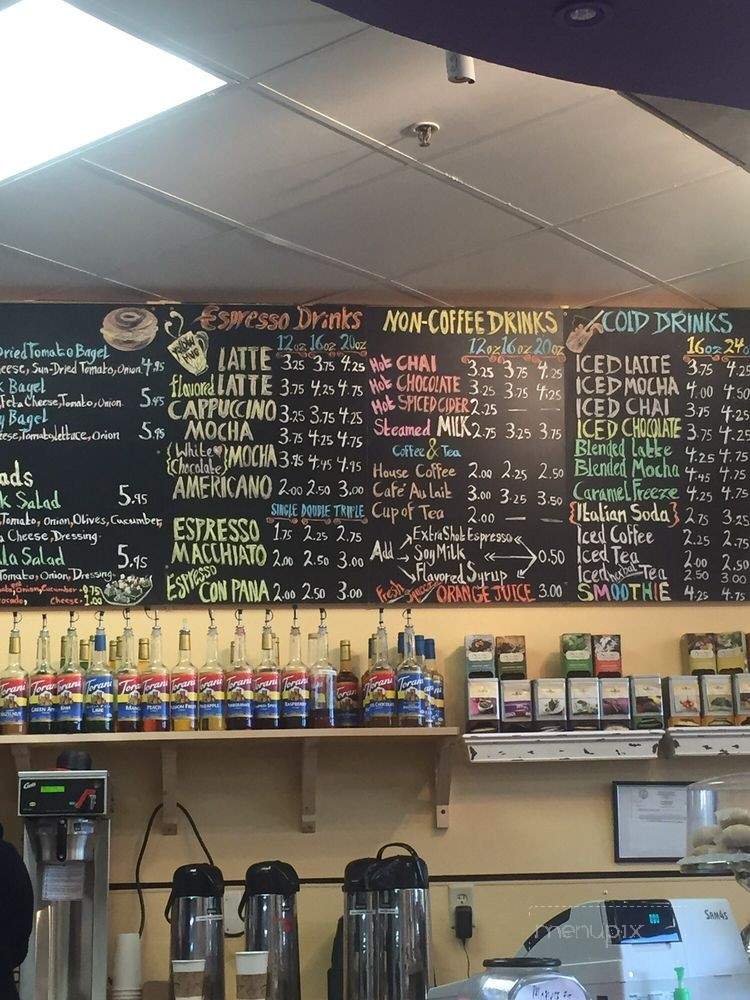 Dried Tomato Bagel
heese, Sun-Dried Tomato, Onion. 4.95
k Bagel
feta Cheese, Tomato, Onion. 5.95
y Bagel
eese, Tomato, lettuce, Onion 5.95
ads
k Salad 5.95
Tomato, Onion, Olives, Cucumber,
a Cheese, Dressing.
la Salad 5.95
Tomato, Onion, Dressing.
Cheese. 1.00
Espresso Drinks
12oz 16oz 20oz
LATTE 3.25 3.75 4.25
flavored LATTE 3.75 4.25 4.75
CAPPUCCINO 3.25 3.75 4.25
MOCHA 3.75 4.25 4.75
{White Chocolate} MOCHA 3.95 4.45 4.95
AMERICANO 2.00 2.50 3.00
SINGLE DOUBLE TRIPLE
ESPRESSO 1.75 2.25 2.75
MACCHIATO 2.00 2.50 3.00
Espresso CON PANA 2.00 2.50 3.00
NON-COFFEE DRINKS
12oz 16oz 20oz
Hot CHAI 3.25 3.75 4.25
Hot CHOCOLATE 3.25 3.75 4.25
Hot SPICED CIDER 2.25 — —
Steamed MILK 2.75 3.25 3.75
Coffee & Tea
House Coffee 2.00 2.25 2.50
Café Au lait 3.00 3.25 3.50
Cup of Tea 2.00 — —
Add Extra Shot Espresso
Soy Milk 0.50
Flavored Syrup
Fresh ORANGE JUICE 3.00
COLD DRINKS
16oz 24o
ICED LATTE 3.75 4.25
ICED MOCHA 4.00 4.50
ICED CHAI 3.75 4.25
ICED CHOCOLATE 3.75 4.25
Blended Latte 4.25 4.75
Blended Mocha 4.45 4.75
Caramel Freeze 4.25 4.75
{Italian Soda} 2.75 3.25
Iced Coffee 2.25 2.75
Iced Tea 2.00 2.50
Iced herbal Tea 2.50 3.00
SMOOTHIE 4.25 4.75
Torani Torani Torani Torani Torani Torani Torani Torani Torani Torani Torani Torani Torani Torani
HAZELNUT GREEN AP KIWI LIME MANG PEACH PASSION FRUIT PINEAPPLE RASPBERRY CHOCOLATE
SAM4S
menupix